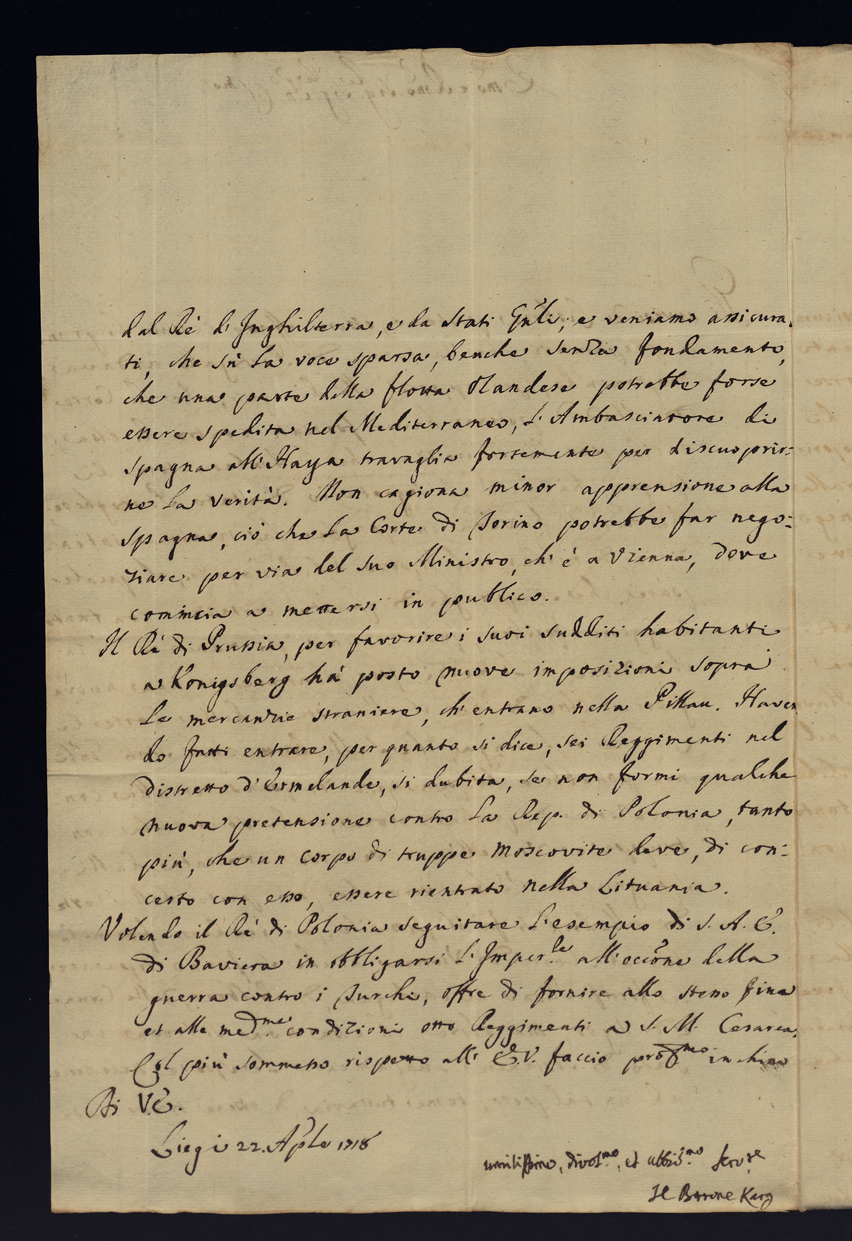 dal Rè d'Inghilterra, e da Stati Gñli; e veniamo assicura-
ti, che sù la voce sparsa, benche senza fondamento,
che una parte della flotta Olandese potrebbe forse
essere spedita nel Mediterraneo, l'Ambasciatore di
Spagna all'Haya travaglia fortemente per discuoprir:
ne la verità. Non cagiona minor apprensione alla
Spagna, ciò che la Corte di Torino potrebbe far nego:
ziare per via del suo Ministro, ch'è a Vienna, dove
comincia a mettersi in publico.
Il Rè di Prussia, per favorire i suoi sudditi habitanti
a Konigsberg hà posto nuove imposizioni sopra
le mercanzie straniere, ch'entrano nella Pillau. Haven
do fatti entrare, per quanto si dice, sei Reggimenti nel
distretto d'Ermelande, si dubita, se non formi qualche
nuova pretensione contro la Rep. di Polonia, tanto
più, che un corpo di truppe Moscovite deve, di con:
certo con esso, essere rientrato nella Lituania.
Volendo il Rè di Polonia seguitare l'esempio di S. A. E.
di Baviera in obbligarsi l'Imper.re all'occõne della
guerra contro i Turchi, offre di fornire allo stesso fine
et alle med.me condizioni otto Reggimenti a S. M. Cesarea.
Col più sommesso rispetto all'E.V. faccio prof.mo inchino
Di V.E.
Liegi 22. Aple 1718
umilissimo, divot.mo, et obblig.mo Serv.re
Il Barone Karg